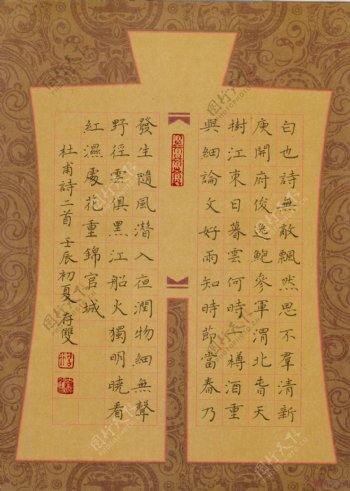 白也詩無敵飄然思不羣清新
庾開府俊逸鮑參軍渭北春天
樹江東日暮雲何時一樽酒重
與細論文好雨知時節當春乃
發生隨風潛入夜潤物細無聲
野徑雲俱黑江船火獨明曉看
紅濕處花重錦官城
杜甫詩二首壬辰初夏存雙